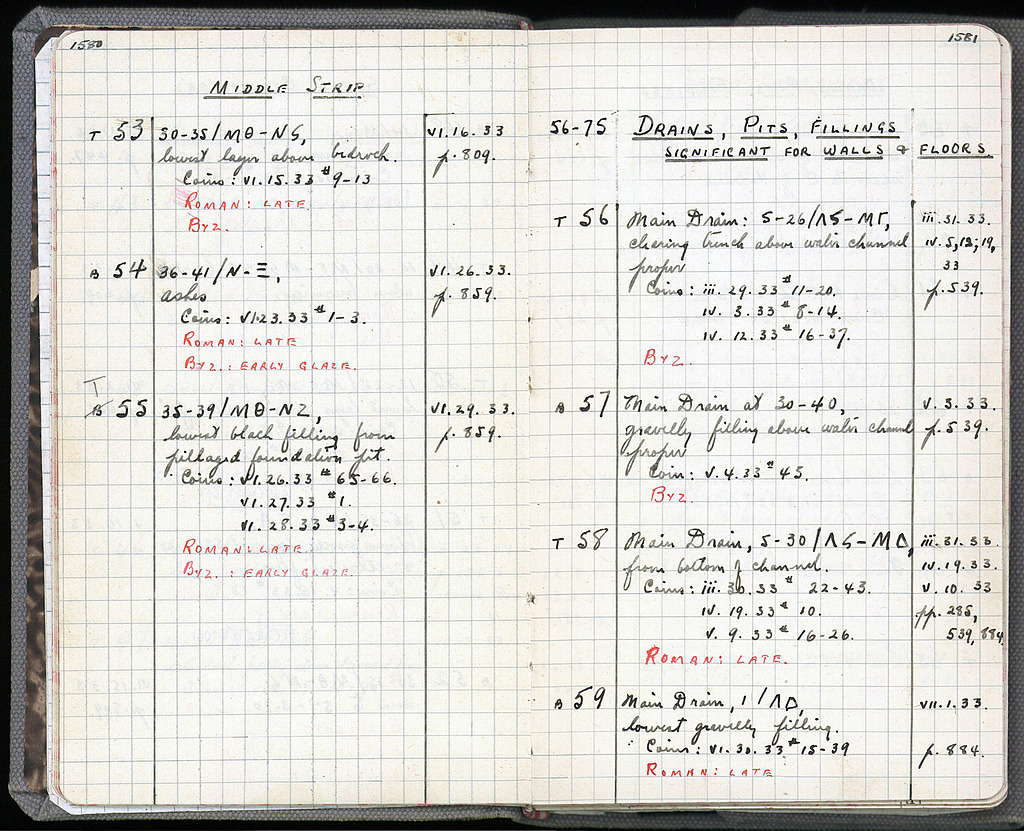 1580
MIDDLE STRIP
T 53 30-35/ΜΘ-ΝϚ, VI.16.33
lowest layer above bedrock. p. 809.
Coins: VI.15.33 # 9-13
ROMAN: LATE
BYZ.
B 54 36-41/Ν-Ξ, VI.26.33.
ashes p. 859.
Coins: VI.23.33 # 1-3.
ROMAN: LATE
BYZ.: EARLY GLAZE.
T
B 55 35-39/ΜΘ-ΝΖ, VI.29.33.
lowest black filling from p. 859.
pillaged foundation pit.
Coins: VI.26.33 # 65-66.
VI.27.33 # 1.
VI.28.33 # 3-4.
ROMAN: LATE.
BYZ.: EARLY GLAZE.
1581
56-75 DRAINS, PITS, FILLINGS
SIGNIFICANT FOR WALLS & FLOORS.
T 56 Main Drain: 5-26/ΛϚ-ΜΓ, iii.31.33.
clearing trench above water channel iv.5,12,19,
proper 33
Coins: iii.29.33 # 11-20. p. 539.
iv. 5.33 # 8-14.
iv. 12.33 # 16-37.
BYZ.
B 57 Main Drain at 30-40, v.3.33.
gravelly filling above water channel p. 539.
proper
Coin: v.4.33 # 45.
BYZ.
T 58 Main Drain, 5-30/ΛϚ-ΜΔ, iii.31.33.
from bottom of channel. iv.19.33.
Coins: iii.30.33 # 22-43. v.10.33
iv. 19.33 # 10. pp. 285,
v. 9.33 # 16-26. 539, 884
ROMAN: LATE.
B 59 Main Drain, 1/ΛΔ, VII.1.33.
lowest gravelly filling.
Coins: VI.30.33 # 15-39 p. 884.
ROMAN: LATE